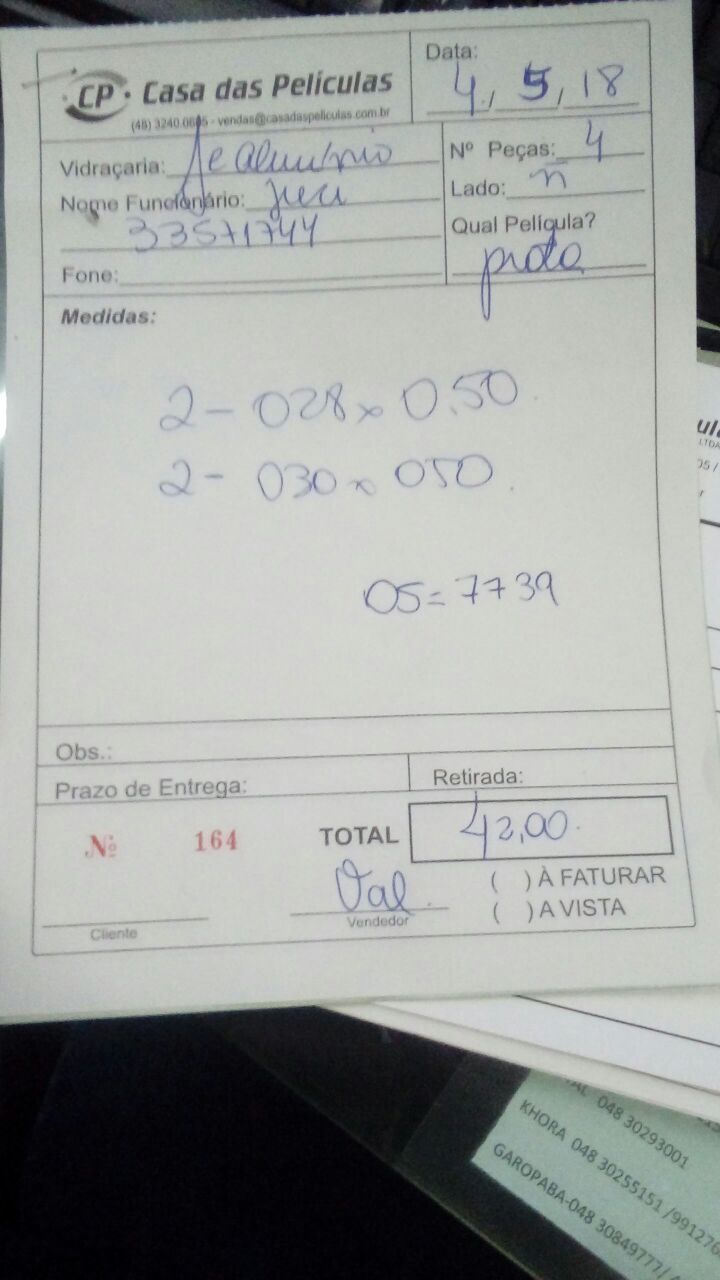 CP • Casa das Películas
vendas@casadaspeliculas.com.br
Data: 4, 5, 18
Vidraçaria: Je Aluminio
Nome Funcionário:
33571744
Fone:
Nº Peças: 4
Lado: n
Qual Película?
preta
Medidas:
2 - 028 x 0.50.
2 - 030 x 050.
OS = 7739
Obs.:
Prazo de Entrega:
Retirada:
Nº 164
TOTAL 42,00.
Val
( ) À FATURAR
( ) A VISTA
Cliente
Vendedor
048 30293001
KHORA 048 30255151 /991276
GAROPABA-048 30849777/